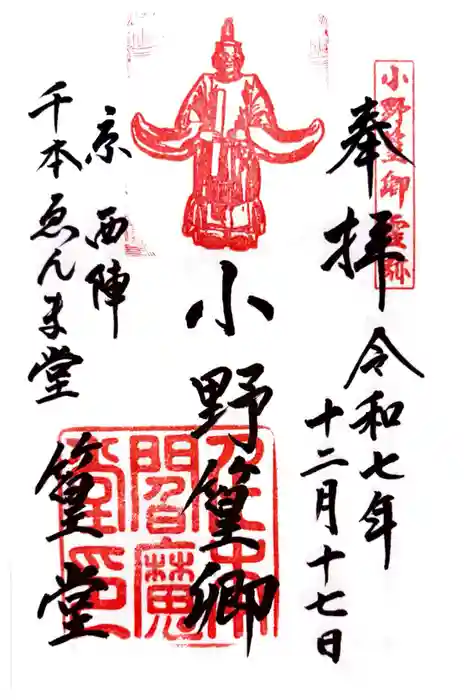 小野篁卿霊跡
奉拝
令和七年
十二月十七日
小野篁卿
京 西陣
千本ゑんま堂
篁堂